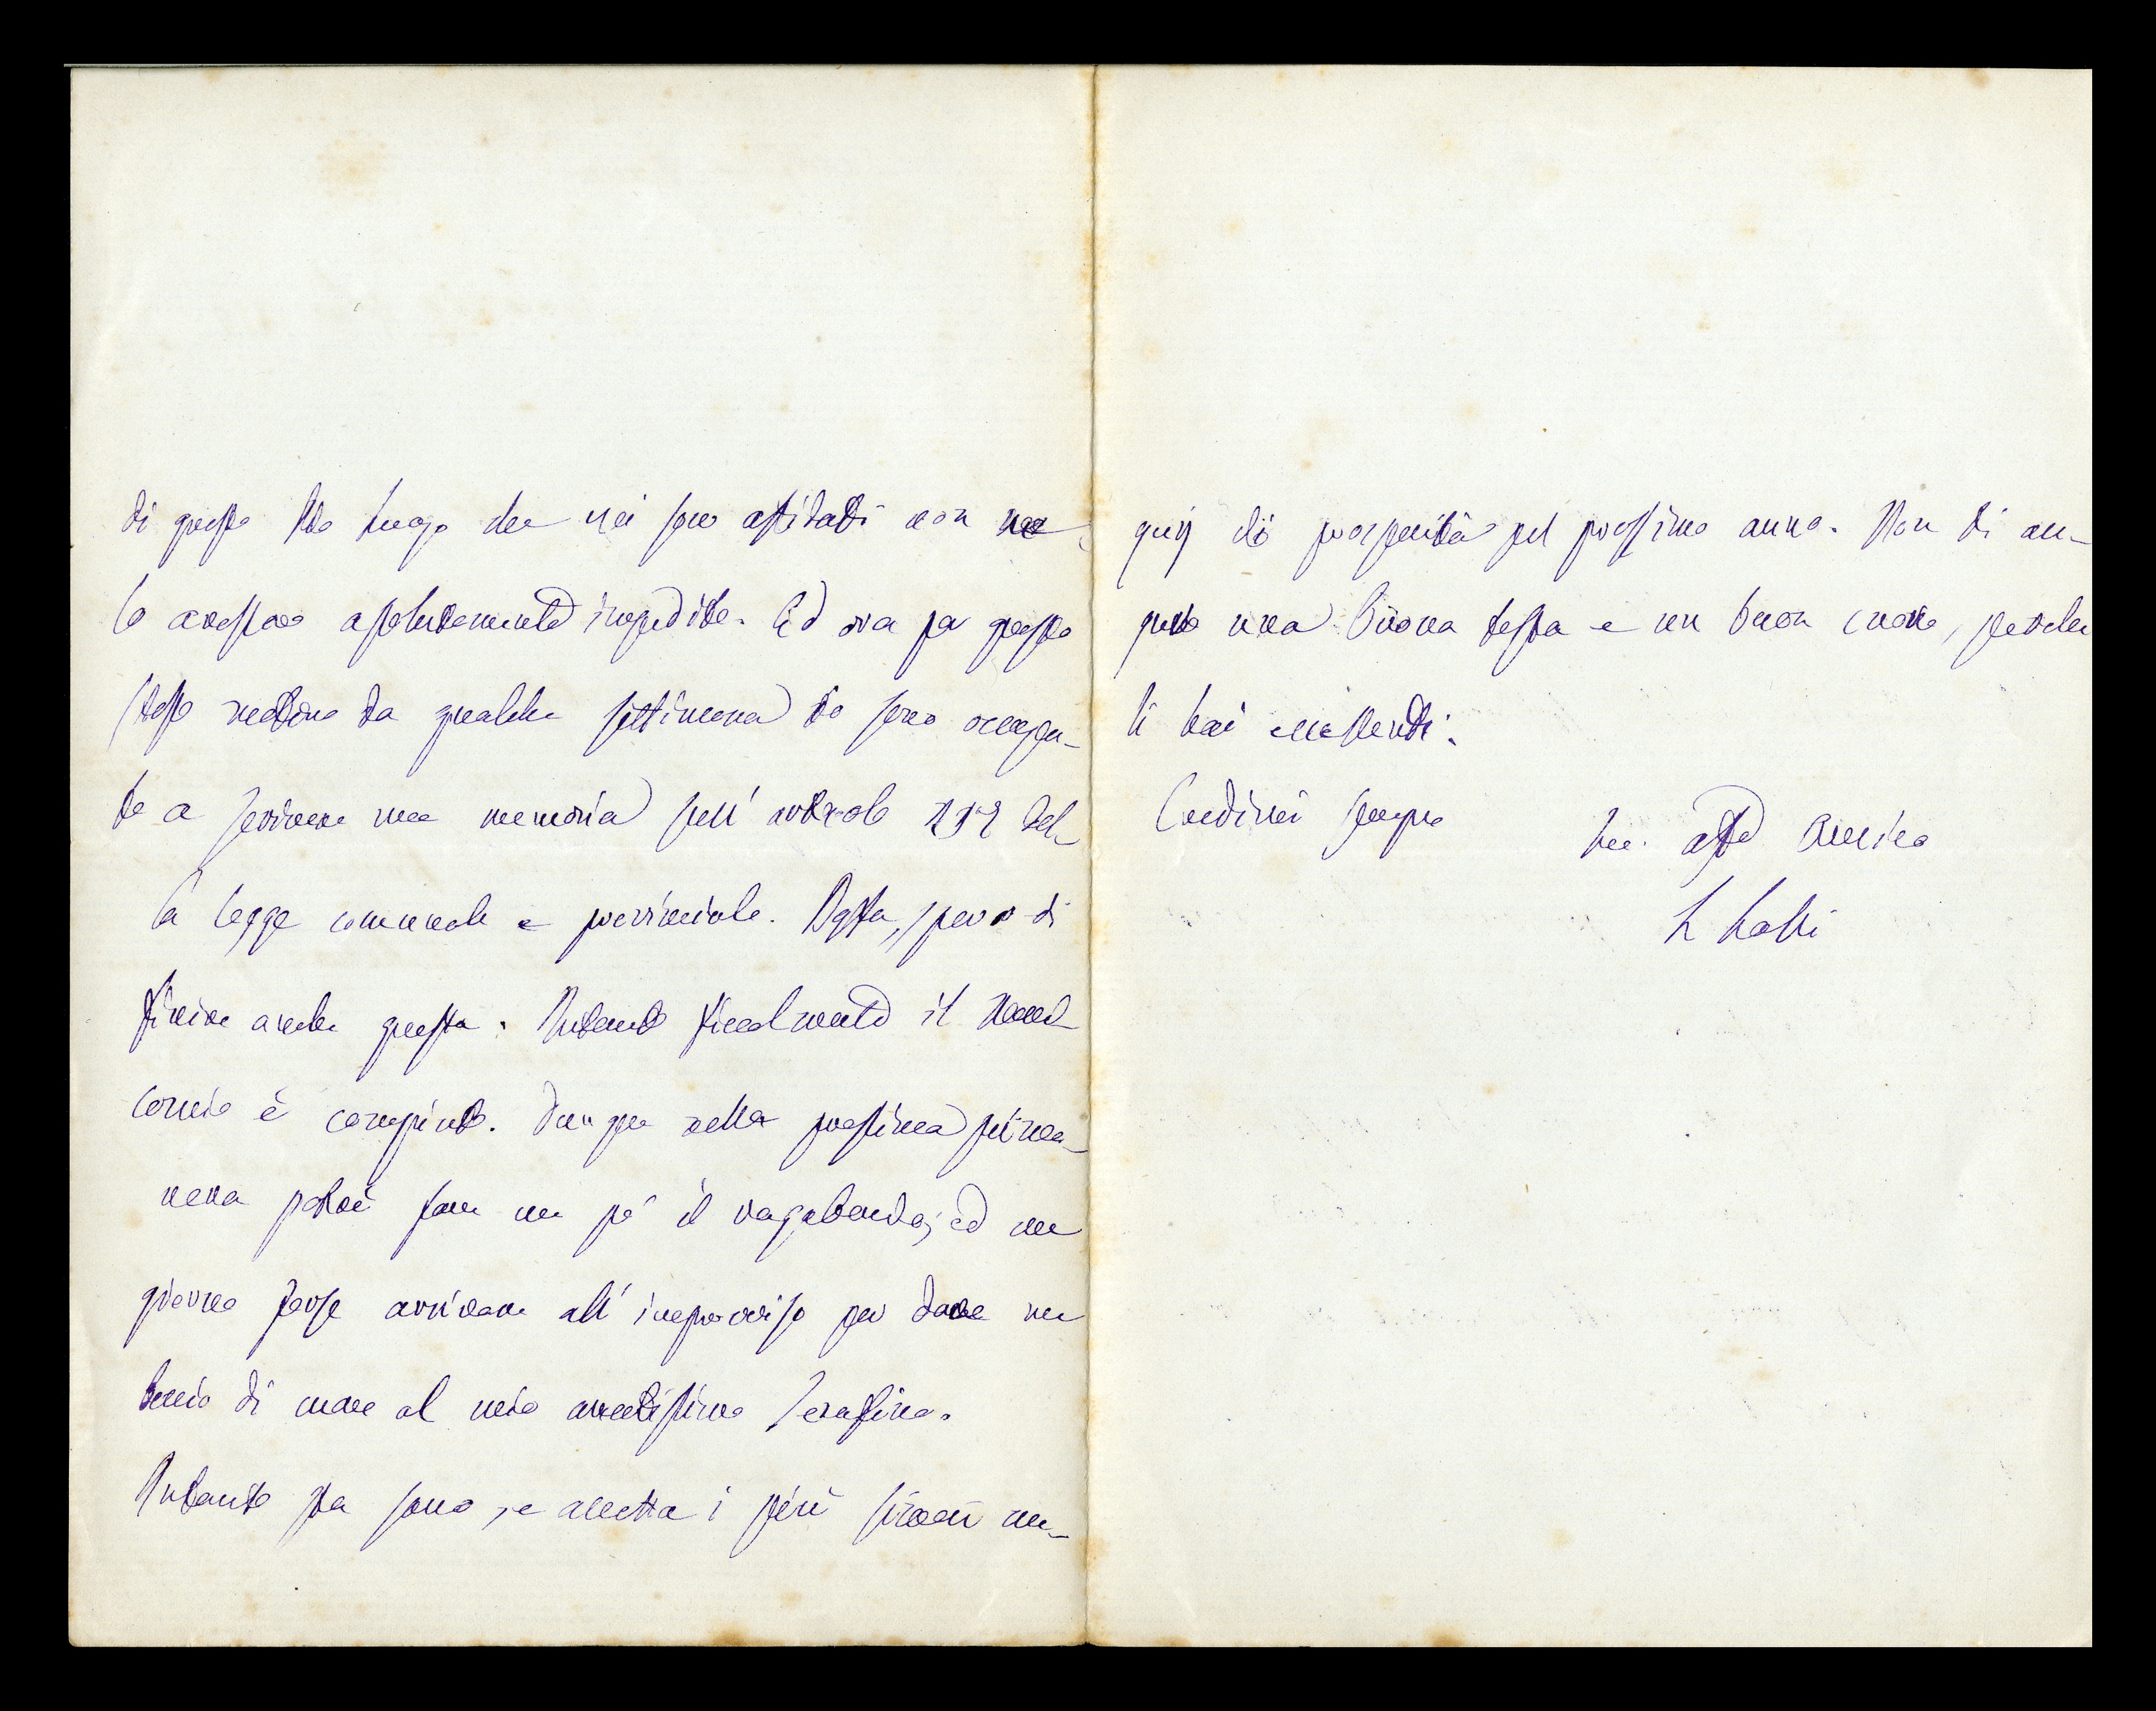 di questo luogo che mi sono affidati non me
lo avessero assolutamente impedito. Ed ora per questo
stesso motivo da qualche settimana io sono occupa-
to a scrivere una memoria sull'articolo 272 del-
la legge comunale e provinciale. Basta, spero di
finire anche questa. Intanto finalmente il Mani-
comio è compiuto. Dunque nella prossima prima-
vera potrò fare un po' il vagabondo; ed un
giorno forse arrivare all'improvviso per dare un
bacio di cuore al mio amatissimo Serafino.
Intanto sta sano, e accetta i più sinceri au-
gurj di prosperità pel prossimo anno. Non ti au-
guro una buona testa e un buon cuore, perchè
li hai eccellenti.
Credimi sempre
tuo affº Amico